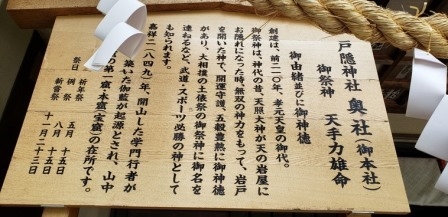 戸隠神社 奥社（御本社）
御祭神 天手力雄命
御由緒並びに御神徳
創建は、前二一〇年、孝元天皇の御代。
御祭神は、神代の昔、天照大神が天の岩屋に
お隠れになった時、無双の神力をもって、岩戸
を開いた神で、開運守護、五穀豊熟に御神徳
があり、大相撲の土俵祭の御祭神に御名を
連ねるなど、武道・スポーツ必勝の神として
も知られます。
嘉祥二（八四九）年、開山した学門行者が
築いた伽藍が起源とされ、山中
第一窟「本窟・宝窟」の在所です。
祭日 祈年祭 五月十五日
例祭 八月十五日
新嘗祭 十一月二十三日